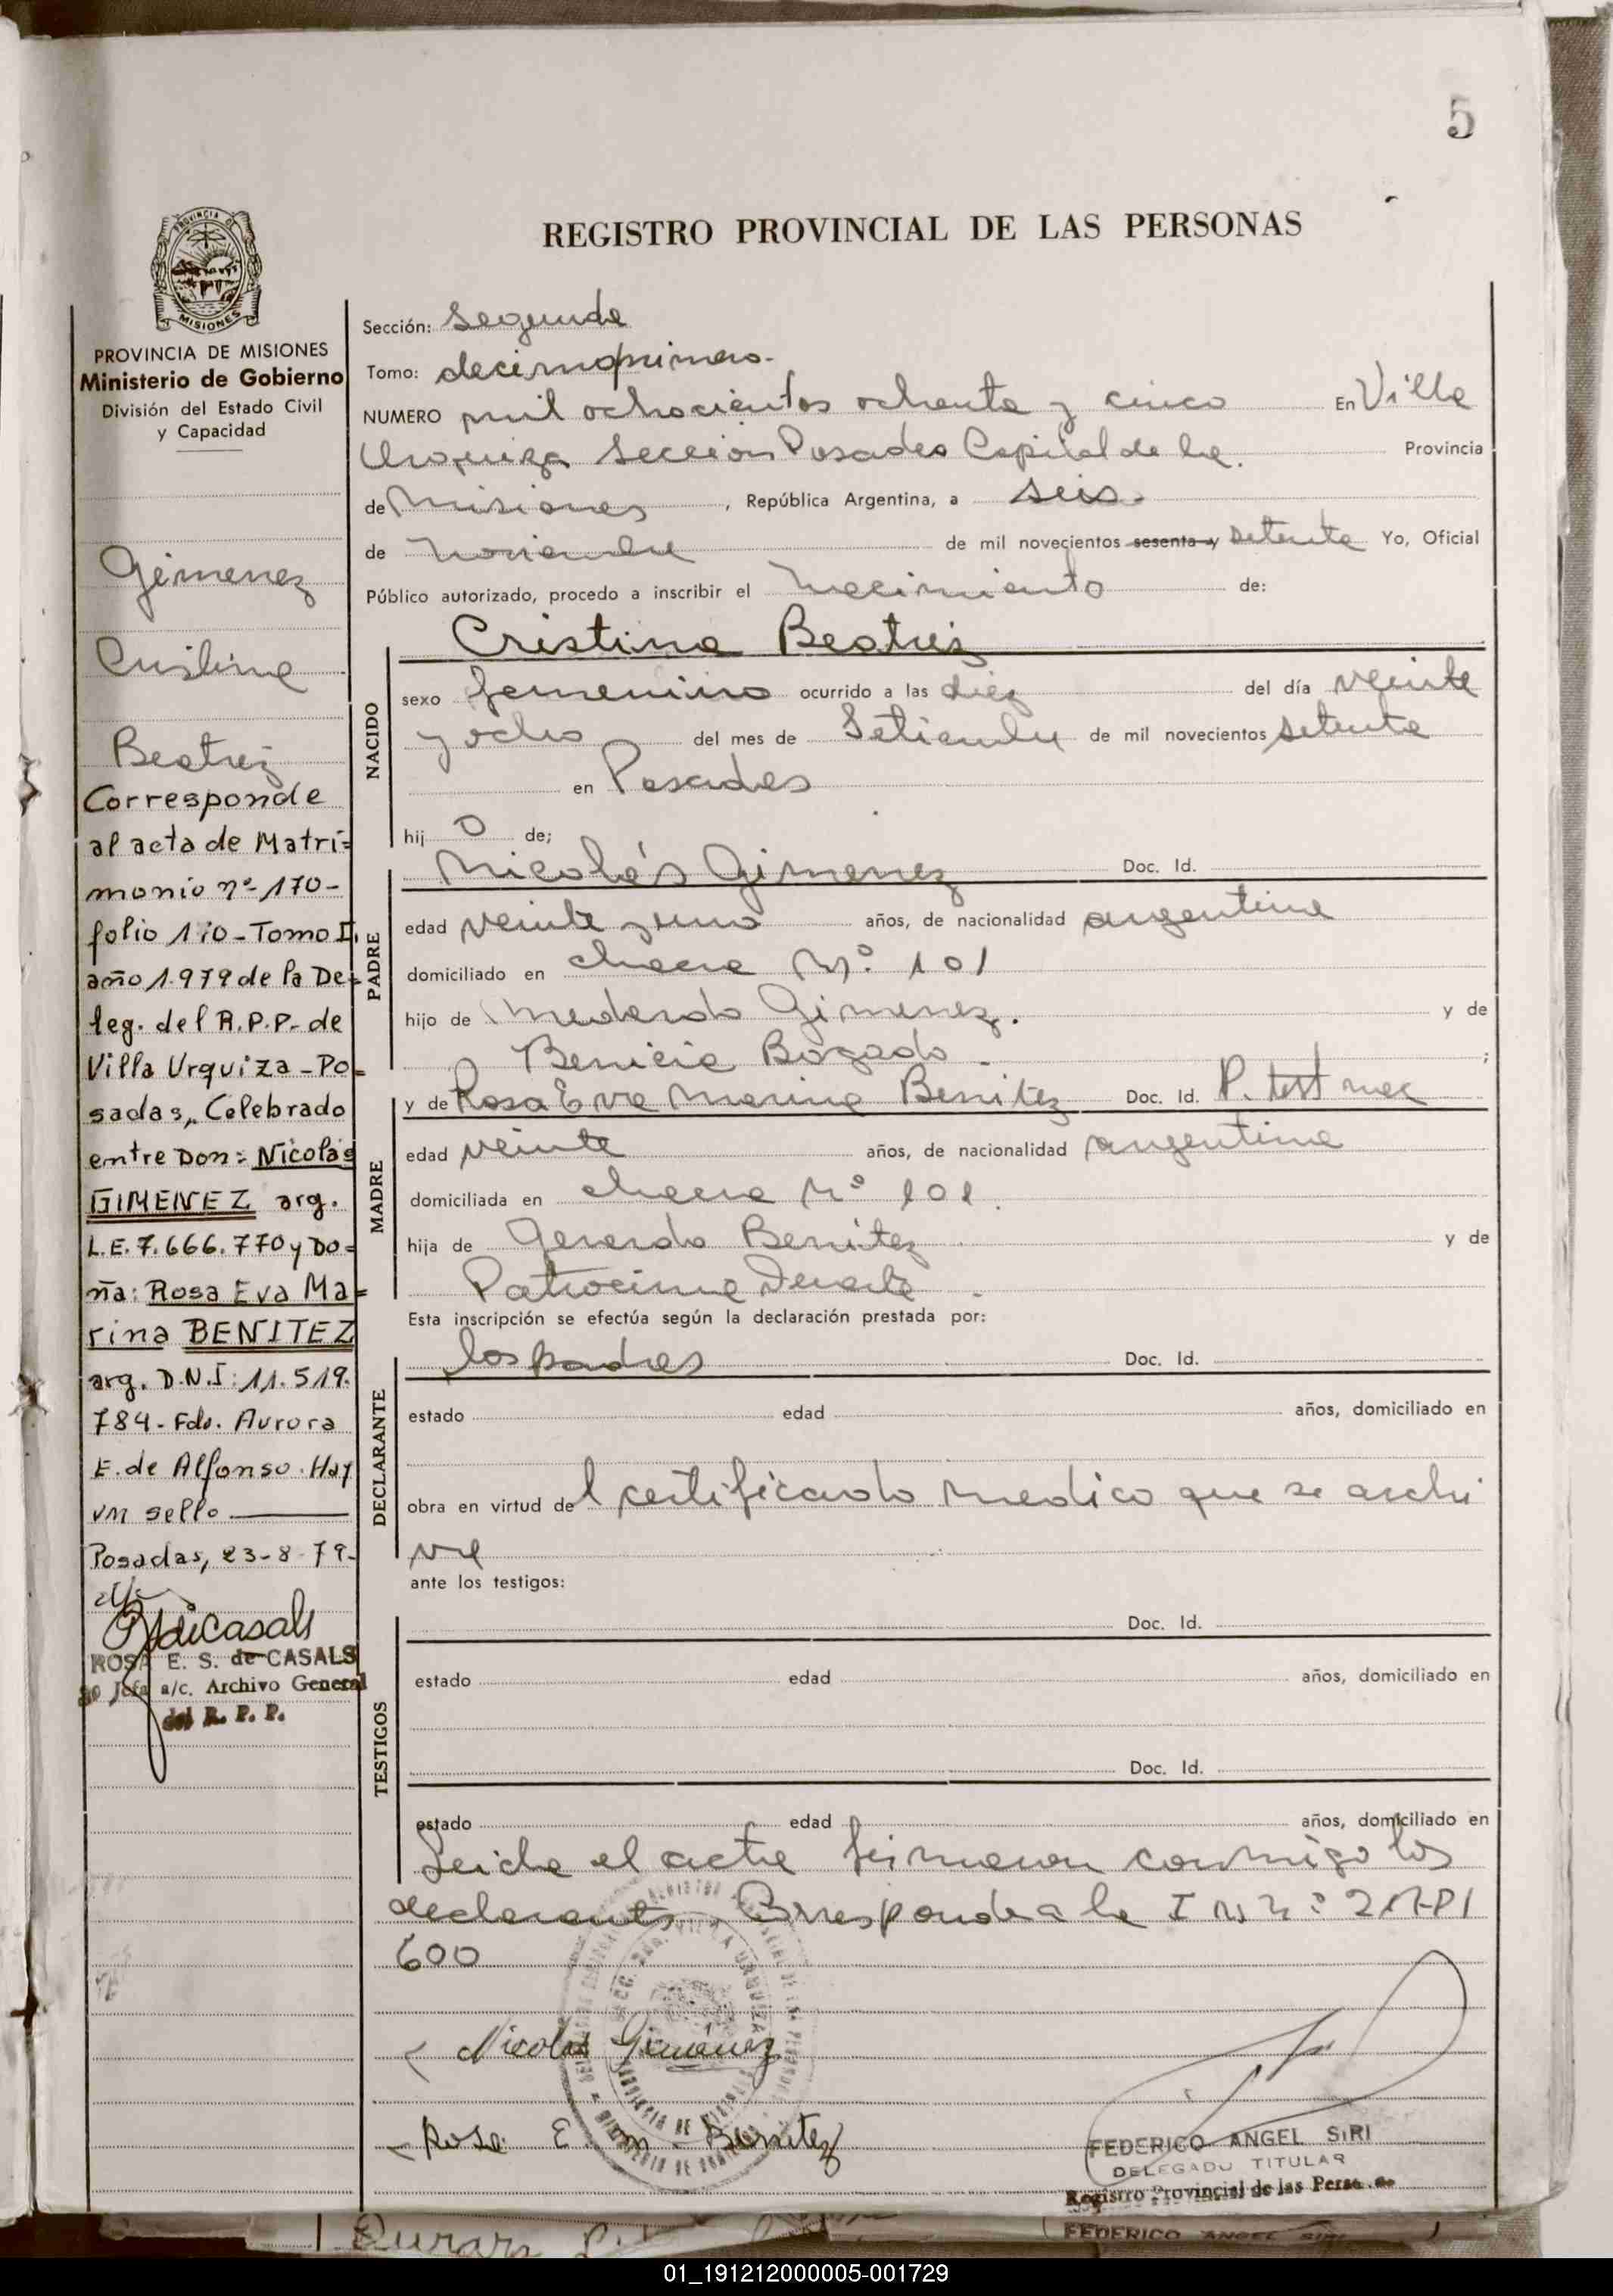 5
REGISTRO PROVINCIAL DE LAS PERSONAS
PROVINCIA DE MISIONES
Ministerio de Gobierno
División del Estado Civil
y Capacidad
Gimenez
Cristina
Beatriz
Corresponde
al acta de Matri=
monio nº 170-
folio 170-Tomo I,
año 1.979 de la De=
leg. del R.P.P. de
Villa Urquiza-Po=
sadas, Celebrado
entre Don: Nicolás
GIMENEZ arg.
L.E. 7.666.770 y Do=
ña: Rosa Eva Ma=
rina BENITEZ
arg. D.N.I: 11.519.
784- Fdo. Aurora
E. de Alfonso. Hay
un sello
Posadas, 23-8-79-
ROSA E. S. de CASALS
Jefa a/c. Archivo General
del R. P. P.
Sección: Segunda
Tomo: decimoprimero-
NUMERO mil ochocientos ochenta y cinco En Villa
Urquiza Sección Posadas Capital de la Provincia
de Misiones, República Argentina, a seis-
de noviembre de mil novecientos sesenta y setenta Yo, Oficial
Público autorizado, procedo a inscribir el nacimiento de:
NACIDO
Cristina Beatriz
sexo femenino ocurrido a las diez del día veinte
y ocho del mes de Setiembre de mil novecientos setenta
en Posadas
hij o de;
PADRE
Nicolás Gimenez Doc. Id.
edad veinte y uno años, de nacionalidad argentina
domiciliado en chacra Nº 101
hijo de Medardo Gimenez. y de
Benicia Bogado - ;
MADRE
y de Rosa Eva Marina Benitez Doc. Id. P. test nac
edad veinte años, de nacionalidad argentina
domiciliada en chacra Nº 101.
hija de Gerardo Benitez y de
Patrocinia Duarte -
Esta inscripción se efectúa según la declaración prestada por:
DECLARANTE
los padres Doc. Id.
estado edad años, domiciliado en
obra en virtud del certificado medico que se archi
va
ante los testigos:
TESTIGOS
Doc. Id.
estado edad años, domiciliado en
Doc. Id.
estado edad años, domiciliado en
Leida el acta firmaron conmigo los
declarantes. Corresponde a la
600
Nicolas Gimenez
Rosa E. M. Benitez
FEDERICO ANGEL SIRI
DELEGADO TITULAR
Registro Provincial de las Personas
FEDERICO ANGEL SIRI
01_191212000005-001729